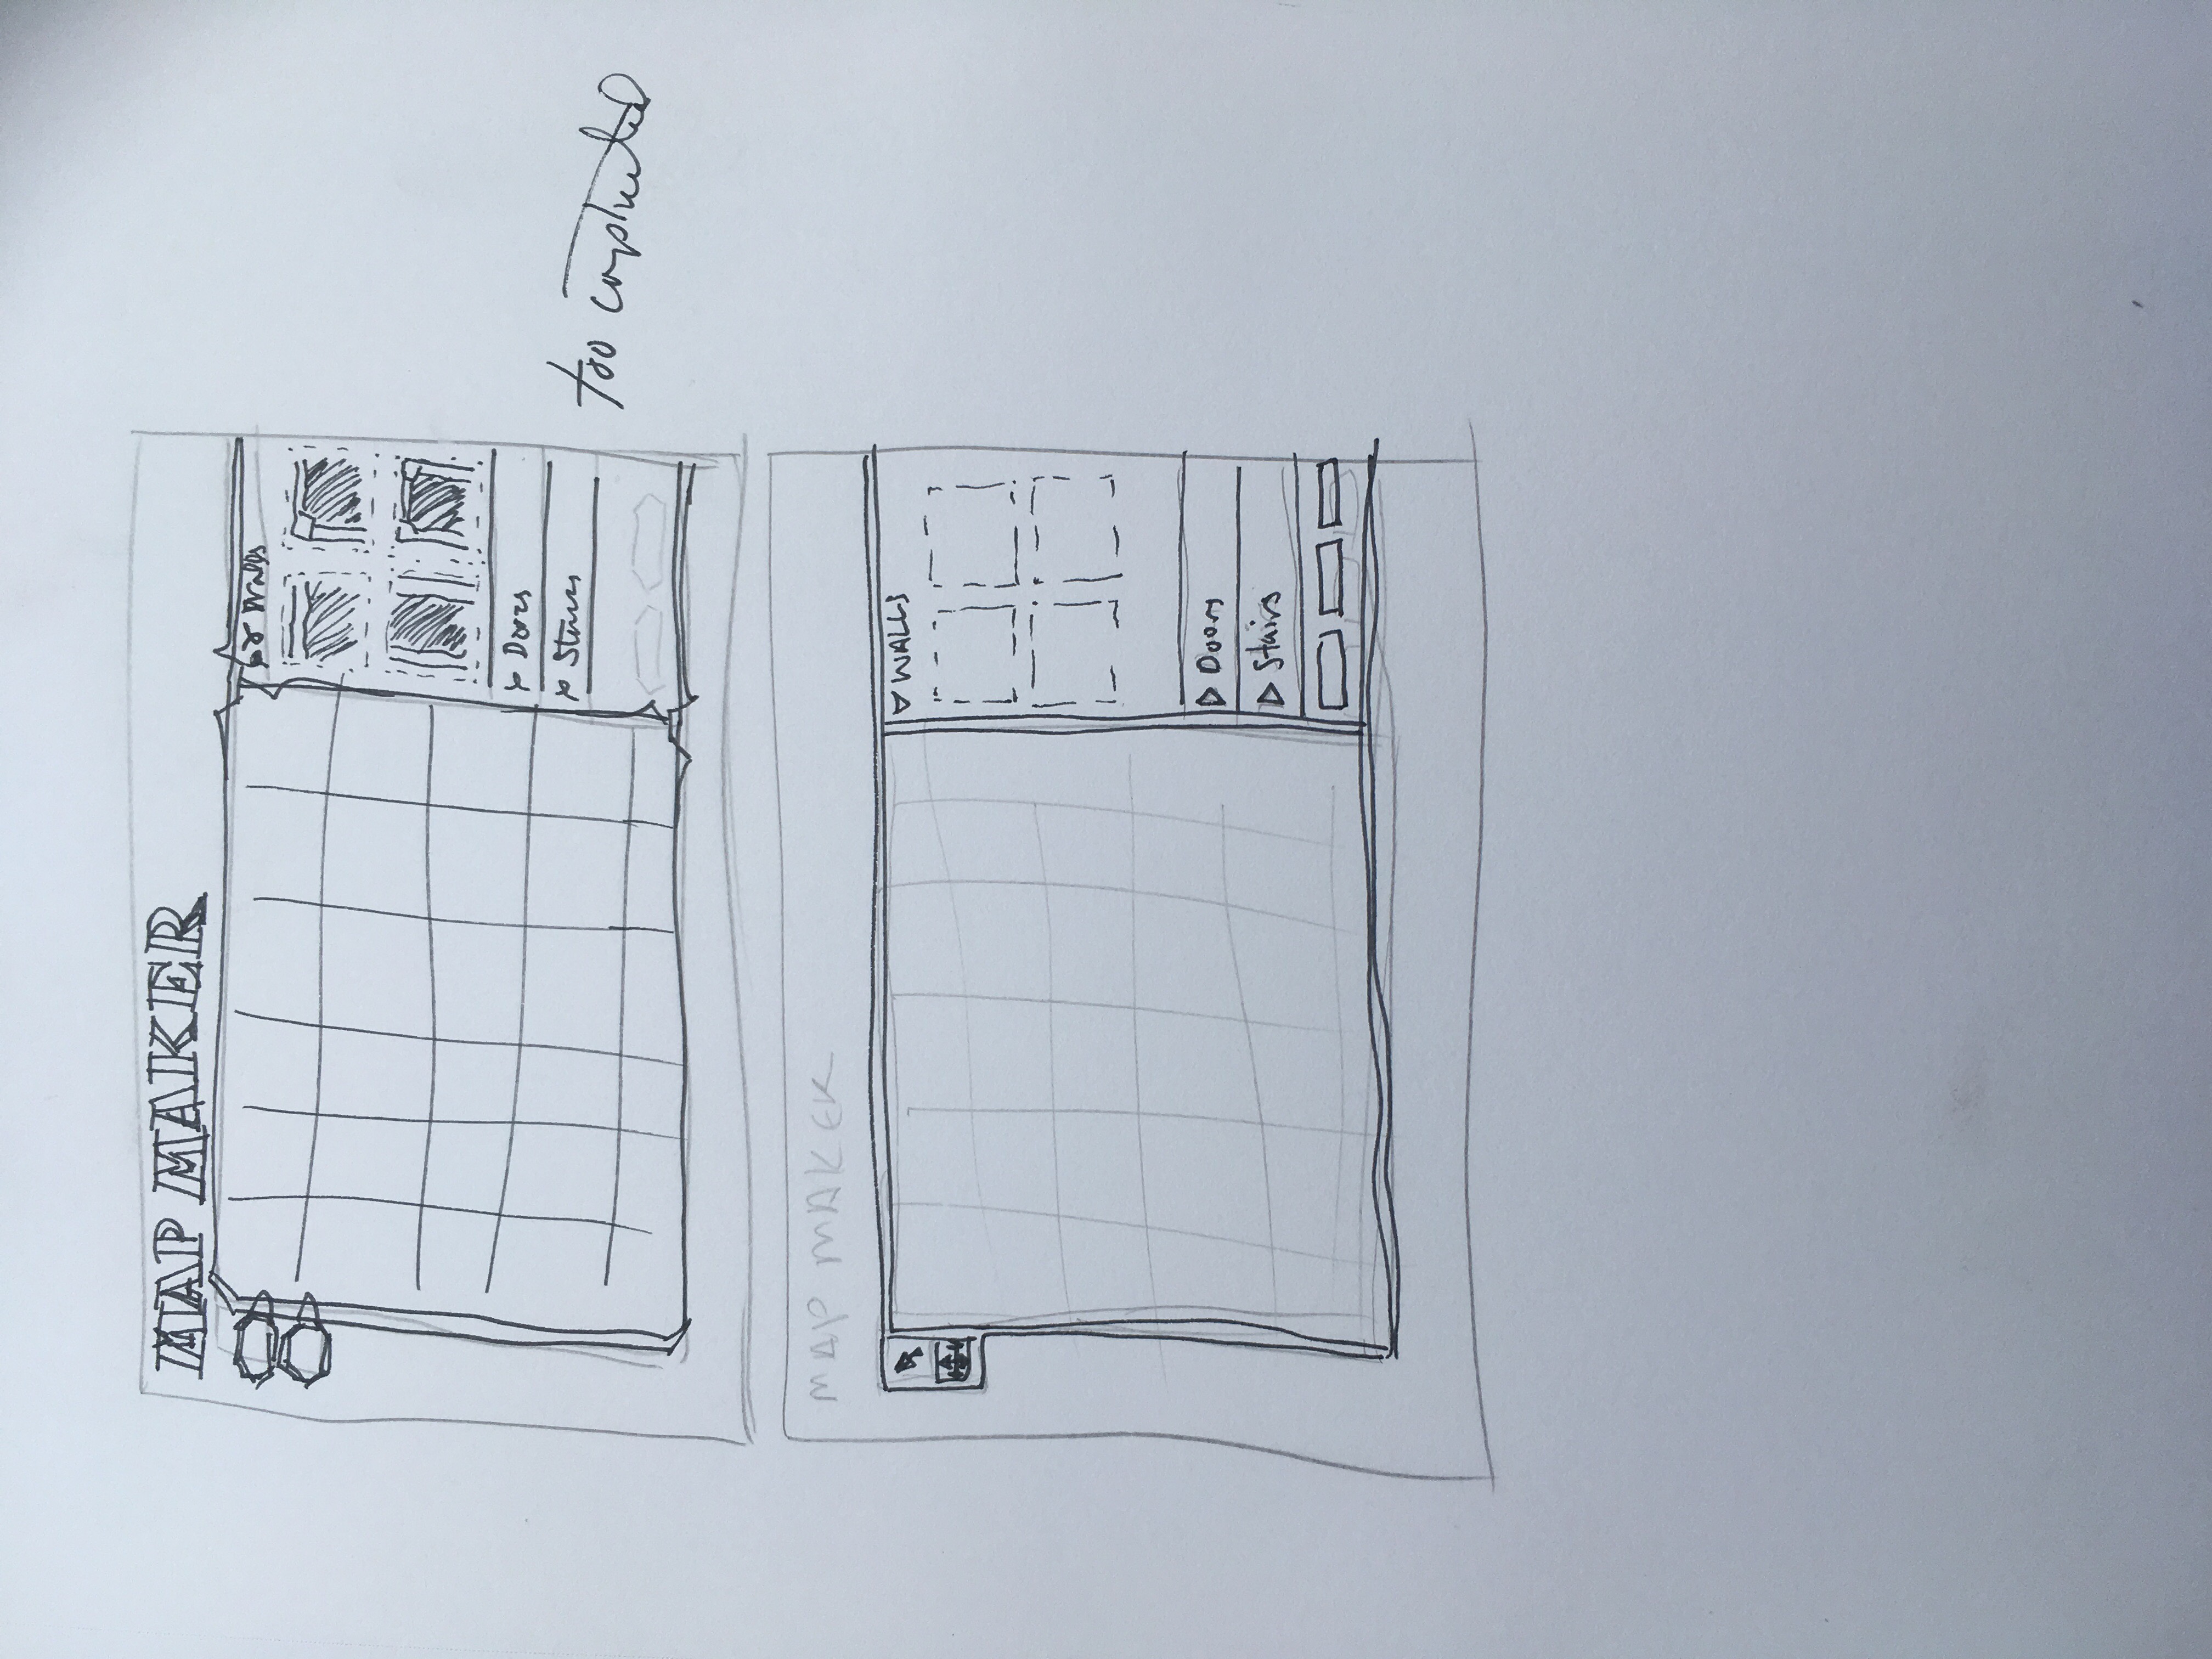 MAP MAKER
Walls
Doors
Stairs
too complicated
MAP MAKER
WALLS
Doors
Stairs